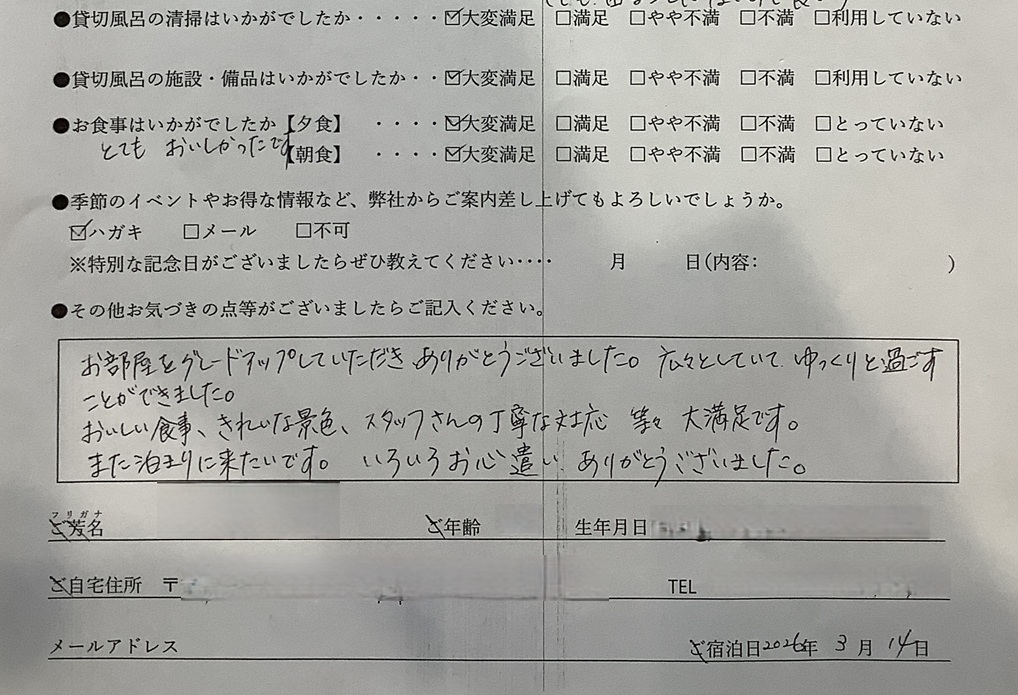 ●貸切風呂の清掃はいかがでしたか・・・・・☑大変満足 □満足 □やや不満 □不満 □利用していない
●貸切風呂の施設・備品はいかがでしたか・・☑大変満足 □満足 □やや不満 □不満 □利用していない
●お食事はいかがでしたか【夕食】 ・・・・☑大変満足 □満足 □やや不満 □不満 □とっていない
とても おいしかったです
【朝食】 ・・・・☑大変満足 □満足 □やや不満 □不満 □とっていない
●季節のイベントやお得な情報など、弊社からご案内差し上げてもよろしいでしょうか。
☑ハガキ □メール □不可
※特別な記念日がございましたらぜひ教えてください‥‥ 月 日(内容: )
●その他お気づきの点等がございましたらご記入ください。
お部屋をグレードアップしていただき ありがとうございました。 広々としていて ゆっくりと過ごす
ことができました。
おいしい食事、きれいな景色、スタッフさんの丁寧な対応 等々 大満足です。
また泊まりに来たいです。 いろいろお心遣い ありがとうございました。
フリガナ
ご芳名 ご年齢 生年月日
ご自宅住所 〒 TEL
メールアドレス ご宿泊日2026年 3月 14日